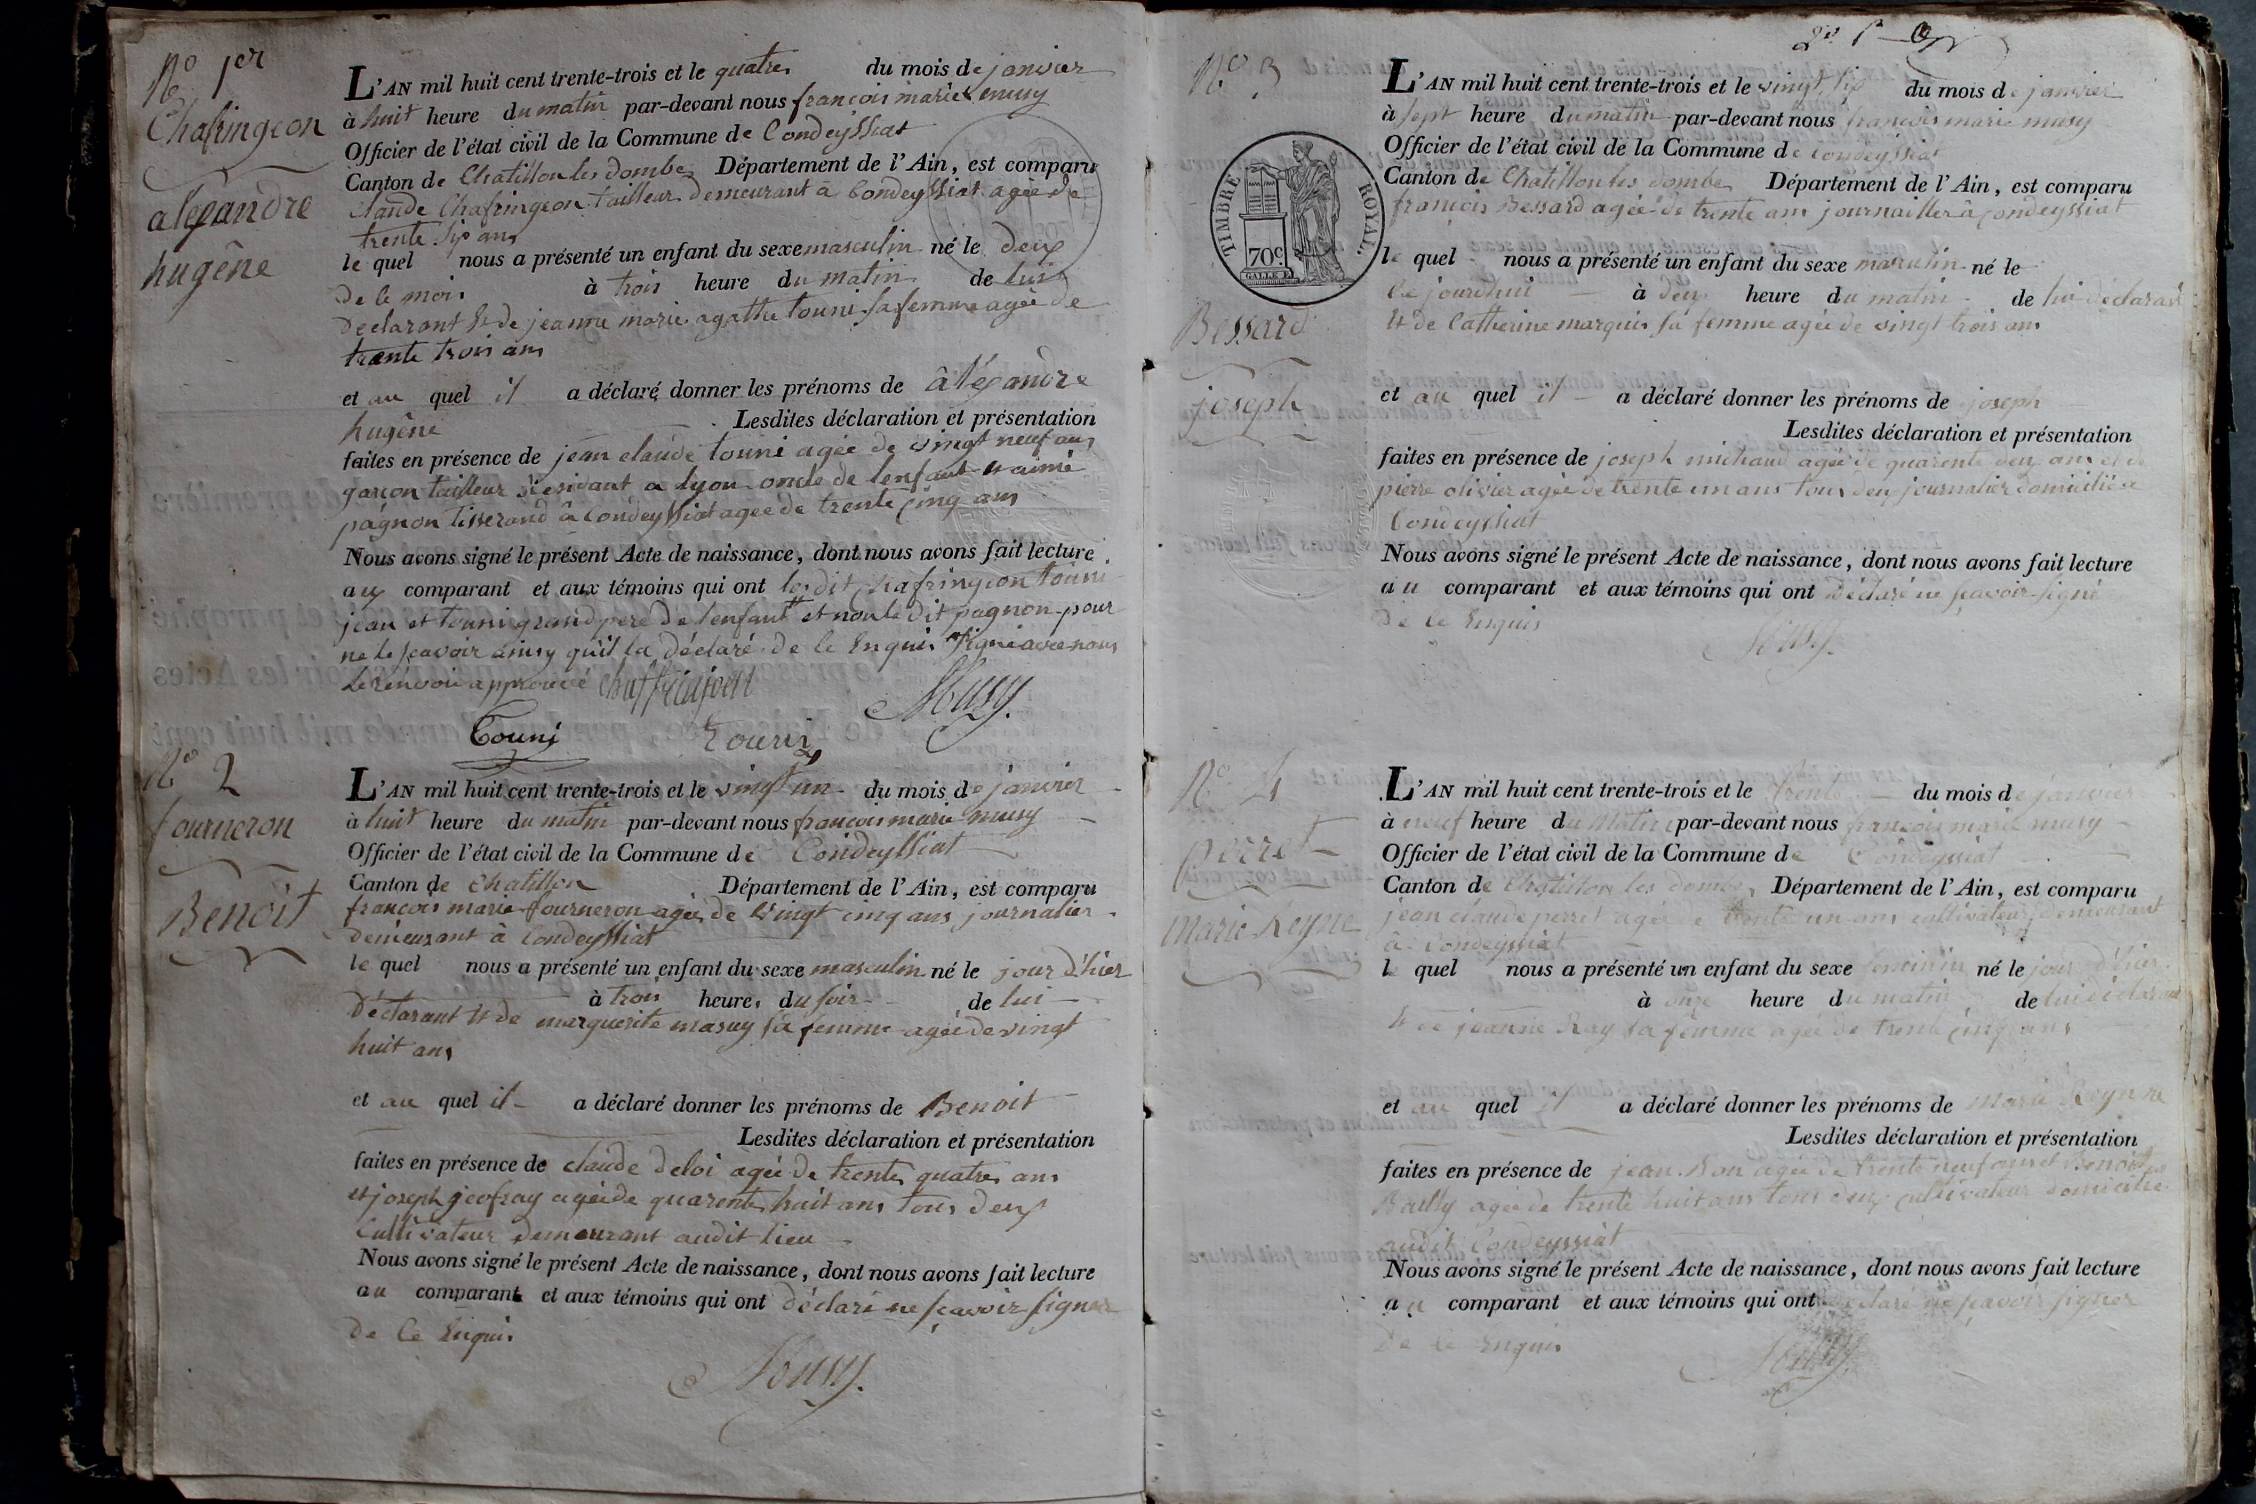 N° 1er
Chafringeon
aléxandre
hugêne
L'AN mil huit cent trente-trois et le quatres du mois de janvier
à huit heure du matin par-devant nous françois marie musy
Officier de l'état civil de la Commune de Condeyssiat
Canton de Chatillon les dombes Département de l'Ain, est comparu
claude Chafringeon tailleur demeurant à Condeyssiat agée de
trente six ans
le quel nous a présenté un enfant du sexe masculin né le deux
de ce mois à trois heure du matin de lui
declarant et de jeanne marie agathe touni sa femme agée de
trente trois ans
et au quel il a déclaré donner les prénoms de âléxandre
hugêne Lesdites déclaration et présentation
faites en présence de jean claude touni agée de vingt neuf ans
garçon tailleur résidant a lyon oncle de lenfant et aimé
pagnon tisserand à Condeyssiat agée de trente cinq ans
Nous avons signé le présent Acte de naissance, dont nous avons fait lecture
aux comparant et aux témoins qui ont les dit Chafringeon touni
jean et touni grand pere de lenfant et non le dit pagnon pour
ne le sçavoir ainsy qu'il la déclaré de ce Enquis signé avec nous
le renvoie approuvé Musy
Touni Touni
N° 2
fourneron
Benoit
L'AN mil huit cent trente-trois et le vingt un du mois de janvier
à huit heure du matin par-devant nous françois marie musy
Officier de l'état civil de la Commune de Condeyssiat
Canton de chatillon Département de l'Ain, est comparu
françois marie fourneron agée de vingt cinq ans journalier
demeurant à Condeyssiat
le quel nous a présenté un enfant du sexe masculin né le jour d'hier
à trois heures du soir de lui
déclarant et de marguerite masuy sa femme agée de vingt
huit ans
et au quel il a déclaré donner les prénoms de Benoit
Lesdites déclaration et présentation
faites en présence de claude deloi agée de trente quatres ans
et joseph geofray agée de quarente huit ans tous deux
Cultivateur demeurant audit lieu
Nous avons signé le présent Acte de naissance, dont nous avons fait lecture
au comparant et aux témoins qui ont déclaré ne sçavoir signer
de ce Enquis
Musy
N° 3
TIMBRE ROYAL.
70c.
Bessard
joseph
L'AN mil huit cent trente-trois et le vingt six du mois de janvier
à sept heure du matin par-devant nous françois marie musy
Officier de l'état civil de la Commune de Condeyssiat
Canton de Chatillon les dombes Département de l'Ain, est comparu
françois Bessard agée de trente ans journallier à Condeyssiat
le quel nous a présenté un enfant du sexe masculin né le
ce jourdhui à deux heure du matin de lui déclarant
et de Catherine marquis sa femme agée de vingt trois ans
et au quel il a déclaré donner les prénoms de joseph
Lesdites déclaration et présentation
faites en présence de joseph michaud agée de quarente deux ans et de
pierre olivier agée de trente un ans tous deux journalier domicilié a
Condeyssiat
Nous avons signé le présent Acte de naissance, dont nous avons fait lecture
au comparant et aux témoins qui ont déclaré ne sçavoir signé
de ce Enquis
Musy
N° 4
perret
marie Reyne
L'AN mil huit cent trente-trois et le trente du mois de janvier
à neuf heure du matin par-devant nous françois marie musy
Officier de l'état civil de la Commune de Condeyssiat
Canton de Chatillon les dombes Département de l'Ain, est comparu
jean claude perret agée de trente un ans cultivateur demeurant
à Condeyssiat
le quel nous a présenté un enfant du sexe feminin né le jour d'hier
à onze heure du matin de lui déclarant
et de jeanne Ray sa femme agée de trente cinq ans
et au quel il a déclaré donner les prénoms de marie Reynne
Lesdites déclaration et présentation
faites en présence de jean agée de trente neuf ans et Benoit
Bailly agée de trente huit ans tous deux cultivateur domicilié
audit Condeyssiat
Nous avons signé le présent Acte de naissance, dont nous avons fait lecture
au comparant et aux témoins qui ont déclaré ne sçavoir signer
de ce Enquis
Musy